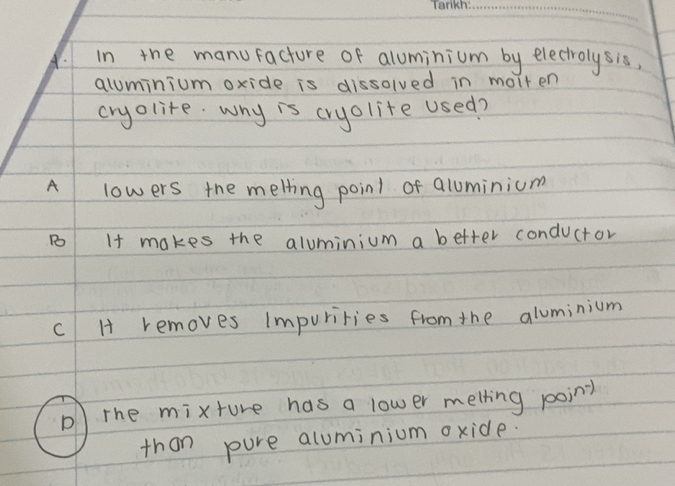 Tarikh:
1. In the manufacture of aluminium by electrolysis,
aluminium oxide is dissolved in molten
cryolite. Why is cryolite used?
A lowers the melting point of aluminium
B It makes the aluminium a better conductor
C It removes Impurities from the aluminium
D The mixture has a lower melting point
than pure aluminium oxide.